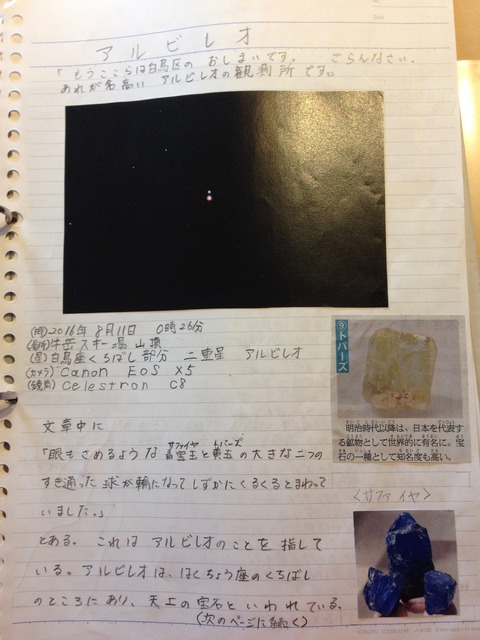 アルビレオ
「もうここらは白鳥区の おしまいです。 ごらんなさい。
あれが名高い アルビレオの観測所です。
(時)2016年 8月11日 0時26分
(場所)牛岳スキー場 山頂
(星)白鳥座くちばし部分 二重星 アルビレオ
(カメラ)Canon EOS X5
(鏡筒)Celestron C8
⑨トパーズ
明治時代以降は、日本を代表す
る鉱物として世界的に有名に。宝
石の一種として知名度も高い。
文章中に
「眼もさめるような 青宝玉と黄玉の大きな二つの
サファイヤ トパーズ
すき通った球が輪になってしずかにくるくるとまわって
いました。」
<サファイヤ>
とある。これは アルビレオのことを指して
いる。アルビレオは、はくちょう座のくちばし
のところにあり、天上の宝石といわれている。
(次のページに続く)